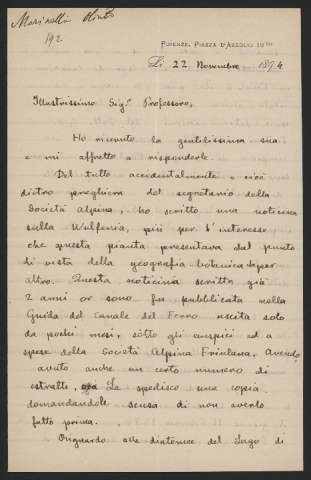 Marinelli Olinto
192
FIRENZE, PIAZZA D'AZEGLIO 12
Li 22 Novembre 1894
Illustrissimo Sig.r Professore,
Ho ricevuto la gentilissima sua
e mi affretto a risponderle.
Del tutto accidentalmente e cioè
dietro preghiera del segretario della
Società Alpina, ho scritto una noticina
sulla Wulfenia, più per l'interesse
che questa pianta presentava dal punto
di vista della geografia botanica che per
altro. Questa noticina scritta già
2 anni or sono fu pubblicata nella
Guida del Canale del Ferro uscita solo
da pochi mesi, sotto gli auspici ed a
spese della Società Alpina Friulana. Avendo
avuto anche un certo numero di
estratti, Le spedisco una copia
domandandole scusa di non averlo
fatto prima.
Riguardo alle diatomee del lago di